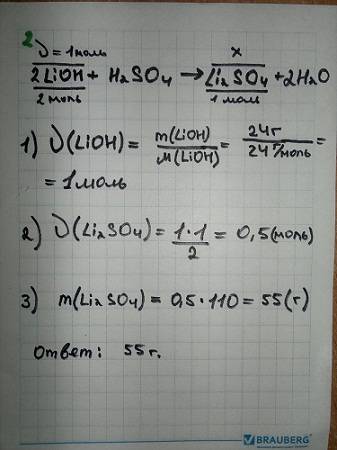 2.
ν = 1моль x
2LiOH + H2SO4 → Li2SO4 + 2H2O
2 моль 1 моль
1) ν(LiOH) = m(LiOH)/M(LiOH) = 24г/24г/моль =
= 1моль
2) ν(Li2SO4) = 1·1/2 = 0,5(моль)
3) m(Li2SO4) = 0,5·110 = 55(г)
Ответ: 55г.
BRAUBERG